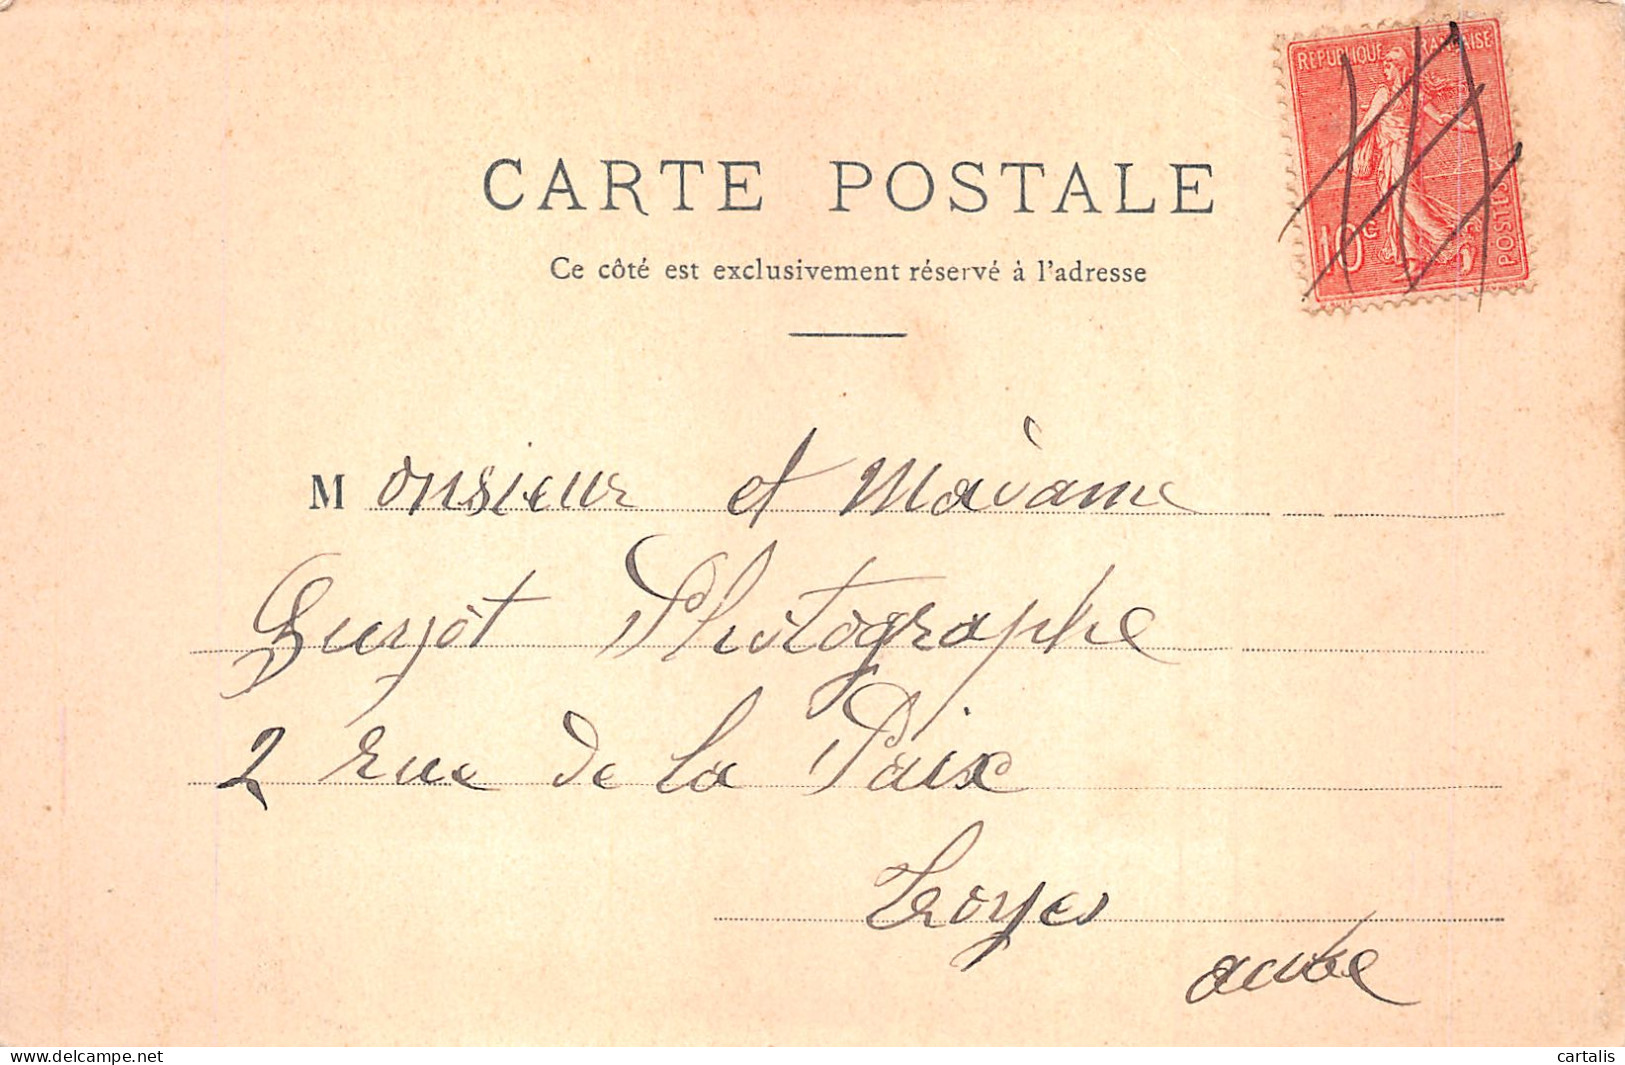 RÉPUBLIQUE FRANÇAISE
POSTES
10 c
CARTE POSTALE
Ce côté est exclusivement réservé à l'adresse
Monsieur et Madame
Guyot Photographe
2 rue de la Paix
Troyes
aube
www.delcampe.net
cartalis